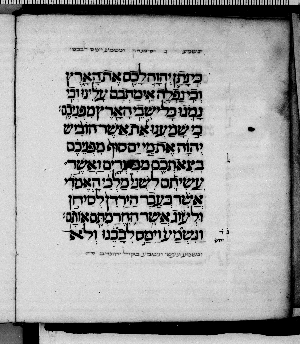 כי נתן יהוה לכם את הארץ
וכי נפלה אימתכם עלינו וכי
נמגו כל ישבי הארץ מפניכם
כי שמענו את אשר הוביש
יהוה את מי ים סוף מפניכם
בצאתכם ממצרים ואשר
עשיתם לשני מלכי האמרי
אשר בעבר הירדן לסיחן
ולעוג אשר החרמתם אותם
ונשמע וימס לבבנו ולא